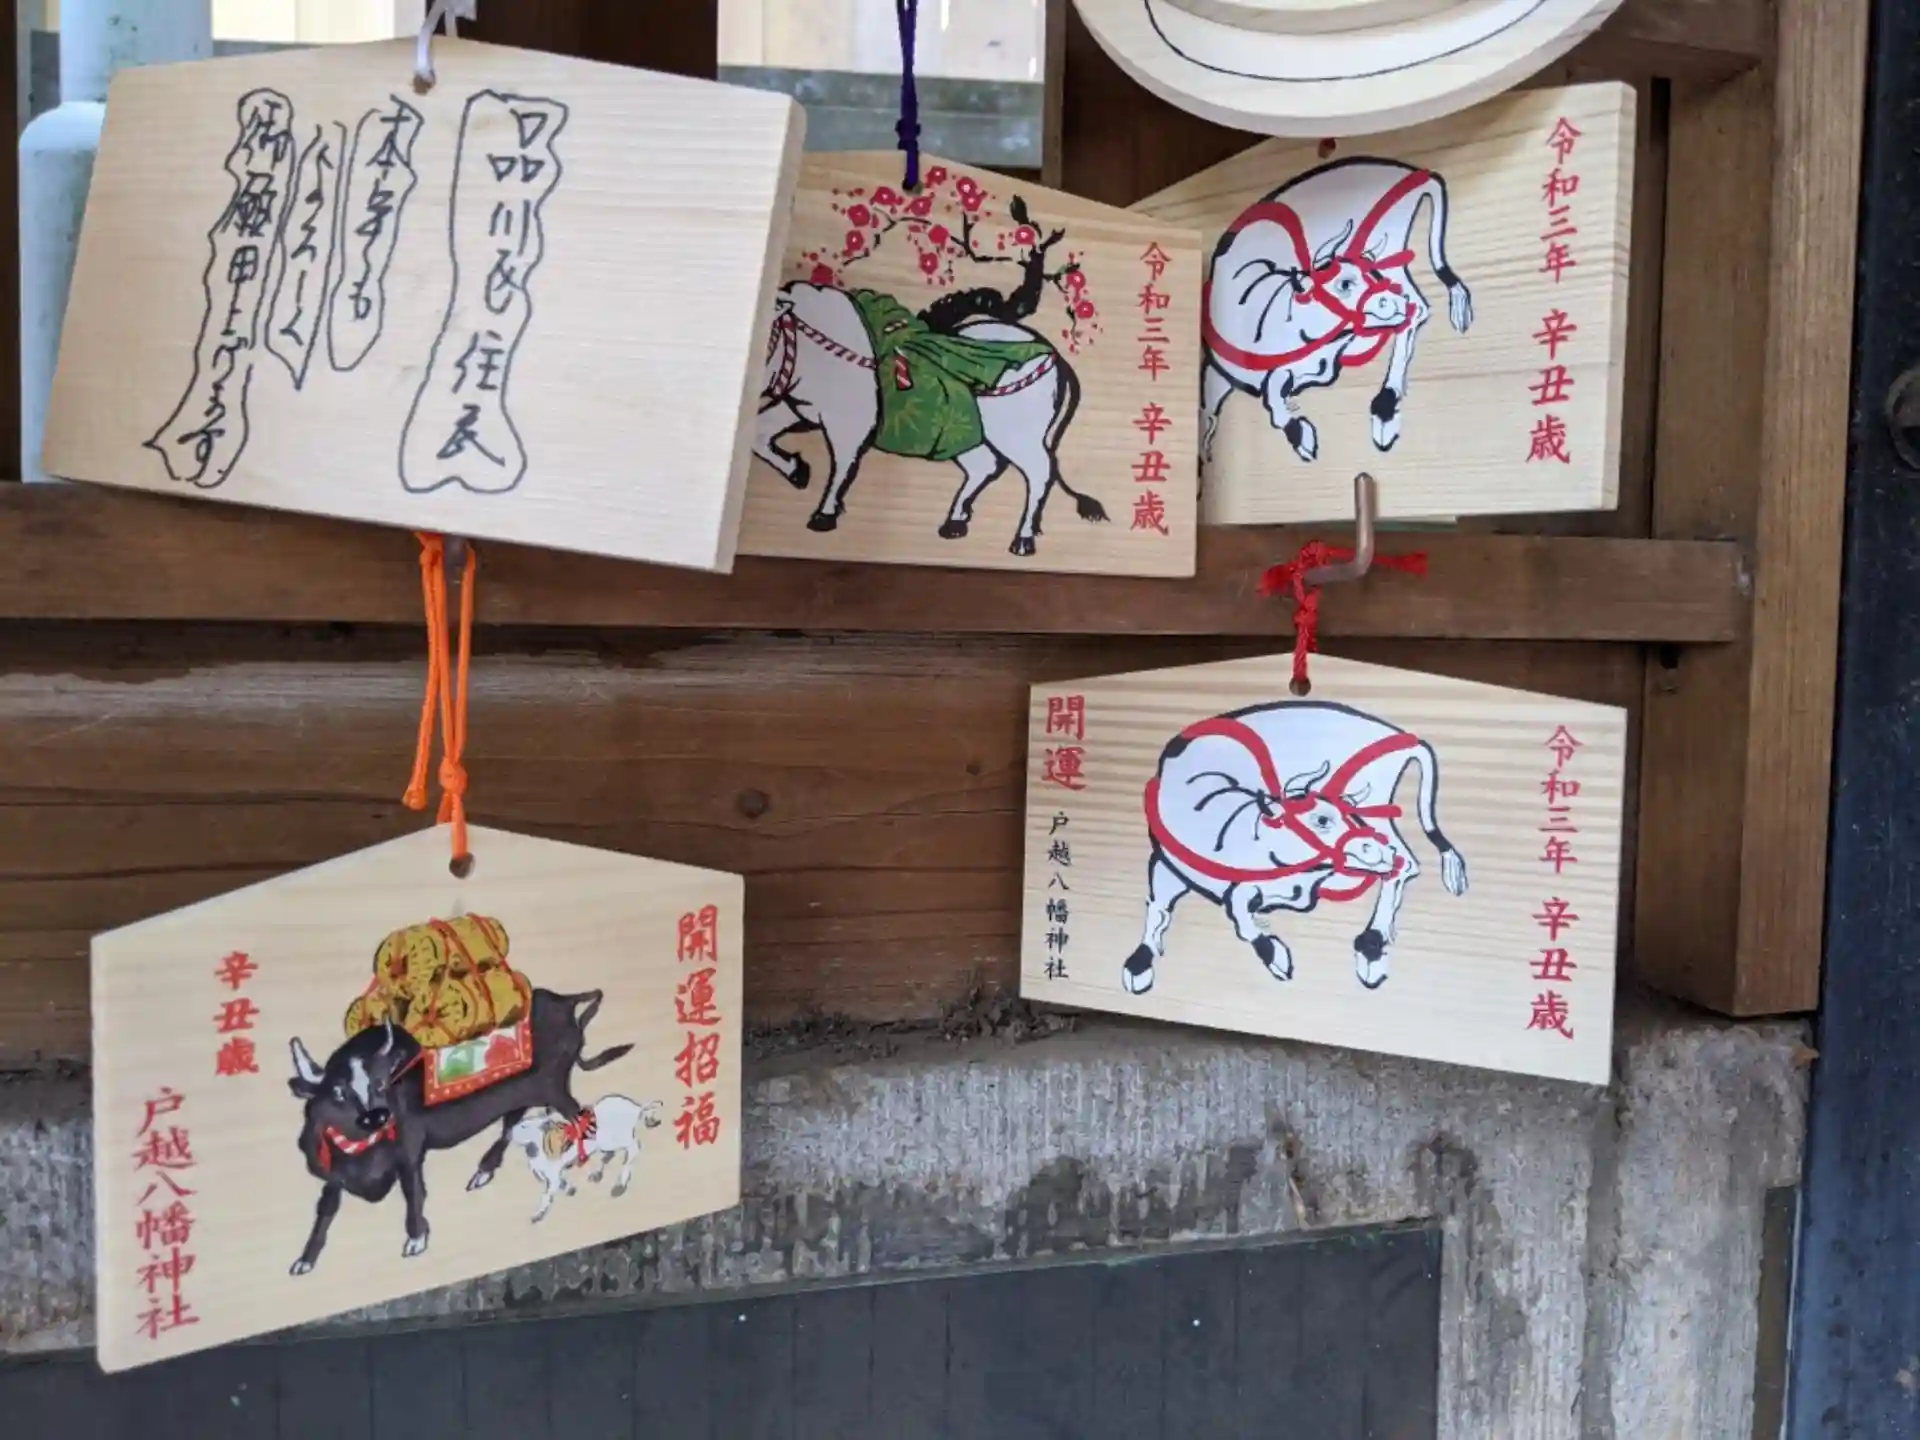 品川民住民
本年も
よろしく
御願申上げます
令和三年 辛丑歳
令和三年 辛丑歳
開運招福
辛丑歳
戸越八幡神社
令和三年 辛丑歳
開運
戸越八幡神社